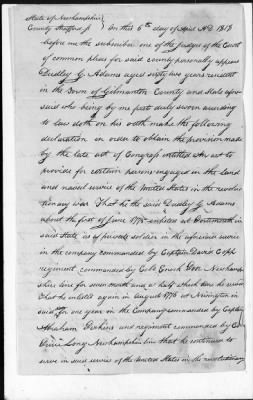 State of Newhampshire
County Strafford ss On this 6th day of April AD 1818
before me the subscriber one of the Judges of the Court
of common pleas for said county personally appears
Dudley G. Adams aged sixty two years resident
in the Town of Gilmanton County and state afore
said who being by me first duly sworn according
to law doth on his oath make the following
declaration in order to obtain the provision made
by the late act of Congress entitled An act to
provide for certain persons engaged in the land
and naval service of the United States in the revolu
tionary war. That he the said Dudley G Adams
about the first of June 1775 enlisted at Portsmouth in
said state as a private soldier in the aforesaid service
in the company commanded by Captain Davis Copp
regiment commanded by Colo Enoch Poor Newhamp
shire line for seven months and a half which time he served
That he enlisted again in August 1776 at Newington in
said for one year in the Company commanded by Captain
Abraham Perkins and regiment commanded by Co
Pierce Long Newhampshire line that he continued to
serve in said service of the United States in the revolutionary